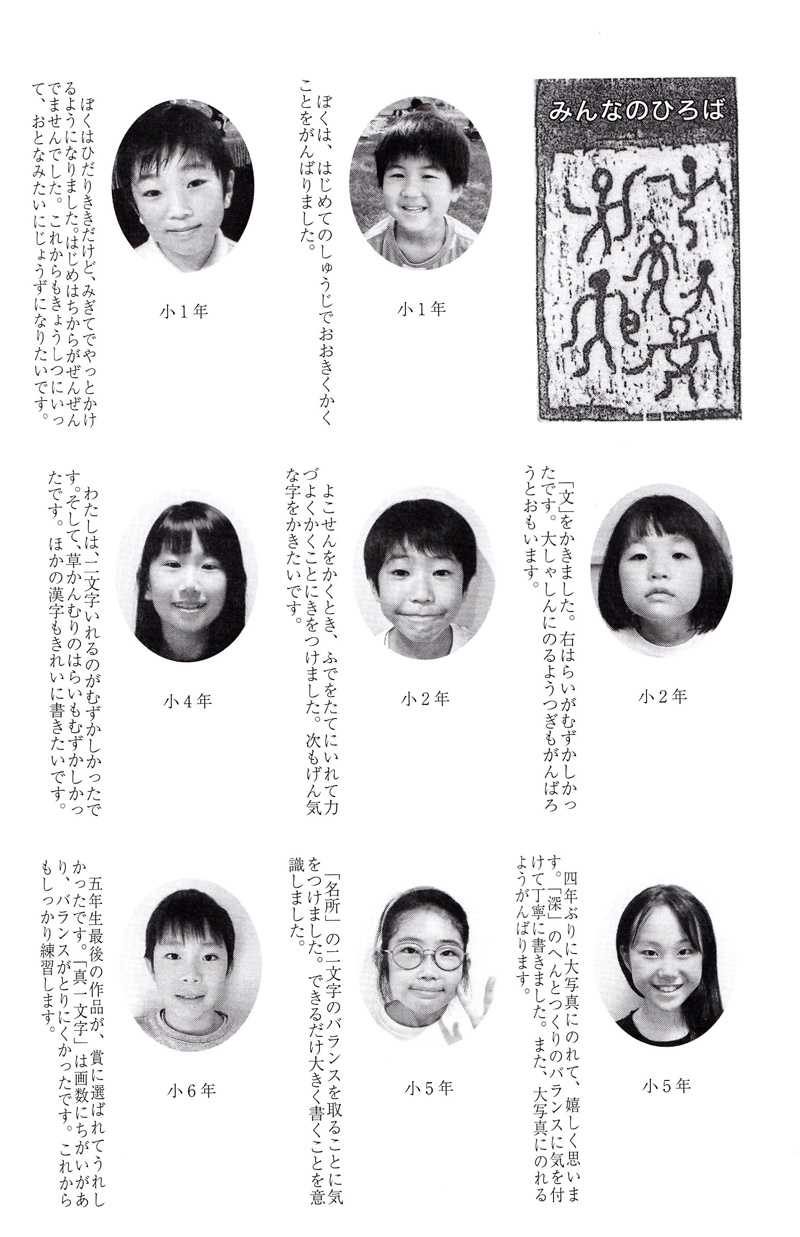 みんなのひろば
小1年
ぼくは、はじめてのしゅうじでおおきくかく
ことをがんばりました。
小1年
ぼくはひだりききだけど、みぎてでやっとかけ
るようになりました。はじめはちからがぜんぜん
でませんでした。これからもきょうしつにいっ
て、おとなみたいにじょうずになりたいです。
小2年
「文」をかきました。右はらいがむずかしかっ
たです。大しゃしんにのるようつぎもがんばろ
うとおもいます。
小2年
よこせんをかくとき、ふでをたてにいれて力
づよくかくことにきをつけました。次もげん気
な字をかきたいです。
小4年
わたしは、二文字いれるのがむずかしかったで
す。そして、草かんむりのはらいもむずかしかっ
たです。ほかの漢字もきれいに書きたいです。
小5年
四年ぶりに大写真にのれて、嬉しく思いま
す。「深」のへんとつくりのバランスに気を付
けて丁寧に書きました。また、大写真にのれる
ようがんばります。
小5年
「名所」の二文字のバランスを取ることに気
をつけました。できるだけ大きく書くことを意
識しました。
小6年
五年生最後の作品が、賞に選ばれてうれし
かったです。「真一文字」は画数にちがいがあ
り、バランスがとりにくかったです。これから
もしっかり練習します。